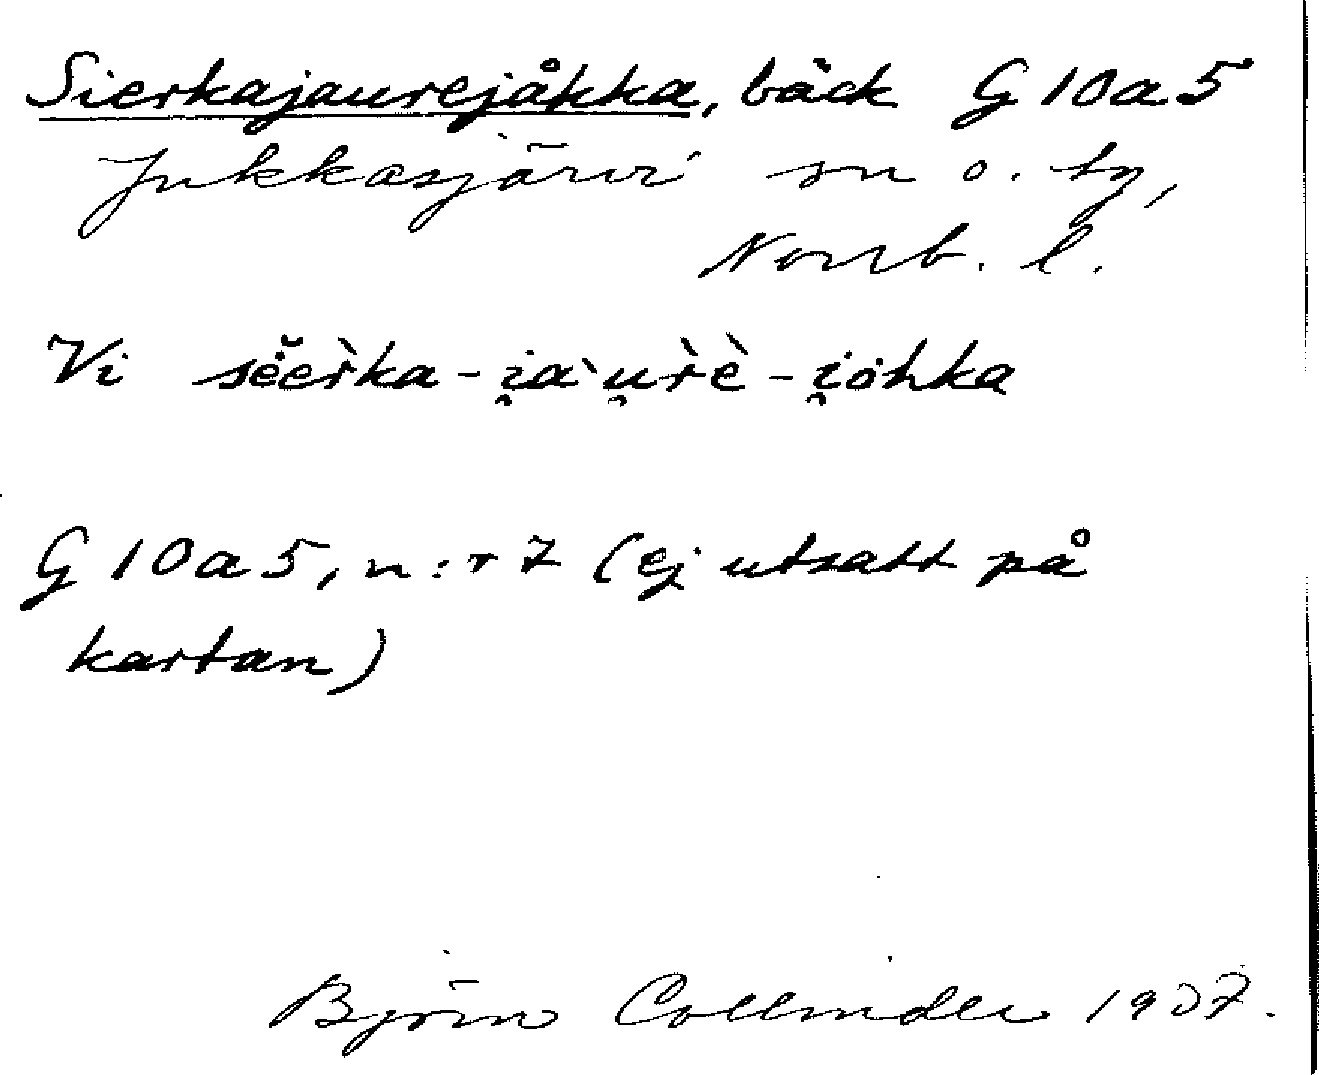 Sierkajaurejåkka, bäck G 10 a 5
Jukkasjärvi sn o. tg,
Norrb. l.
Vi sĕ̇er̀ka-i̯a`u̯r̀è-i̯ȯhka
G 10 a 5, n:r 7 (ej utsatt på
kartan)
Björn Collinder 1937.